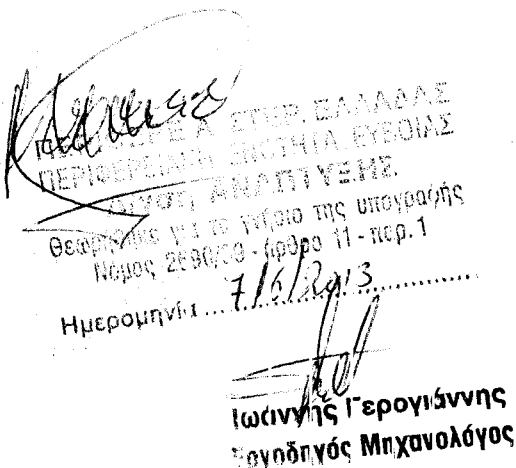 ΠΕΡΙΦΕΡΕΙΑ ΣΤΕΡ. ΕΛΛΑΔΑΣ
ΠΕΡΙΦΕΡΕΙΑΚΗ ΕΝΟΤΗΤΑ ΕΥΒΟΙΑΣ
Δ/ΝΣΗ ΑΝΑΠΤΥΞΗΣ
Θεωρήθηκε για το γνήσιο της υπογραφής
Νόμος 2690/99 - άρθρο 11 - παρ. 1
Ημερομηνία ... 7/6/2013 ...
Ιωάννης Γερογιάννης
Εργοδηγός Μηχανολόγος